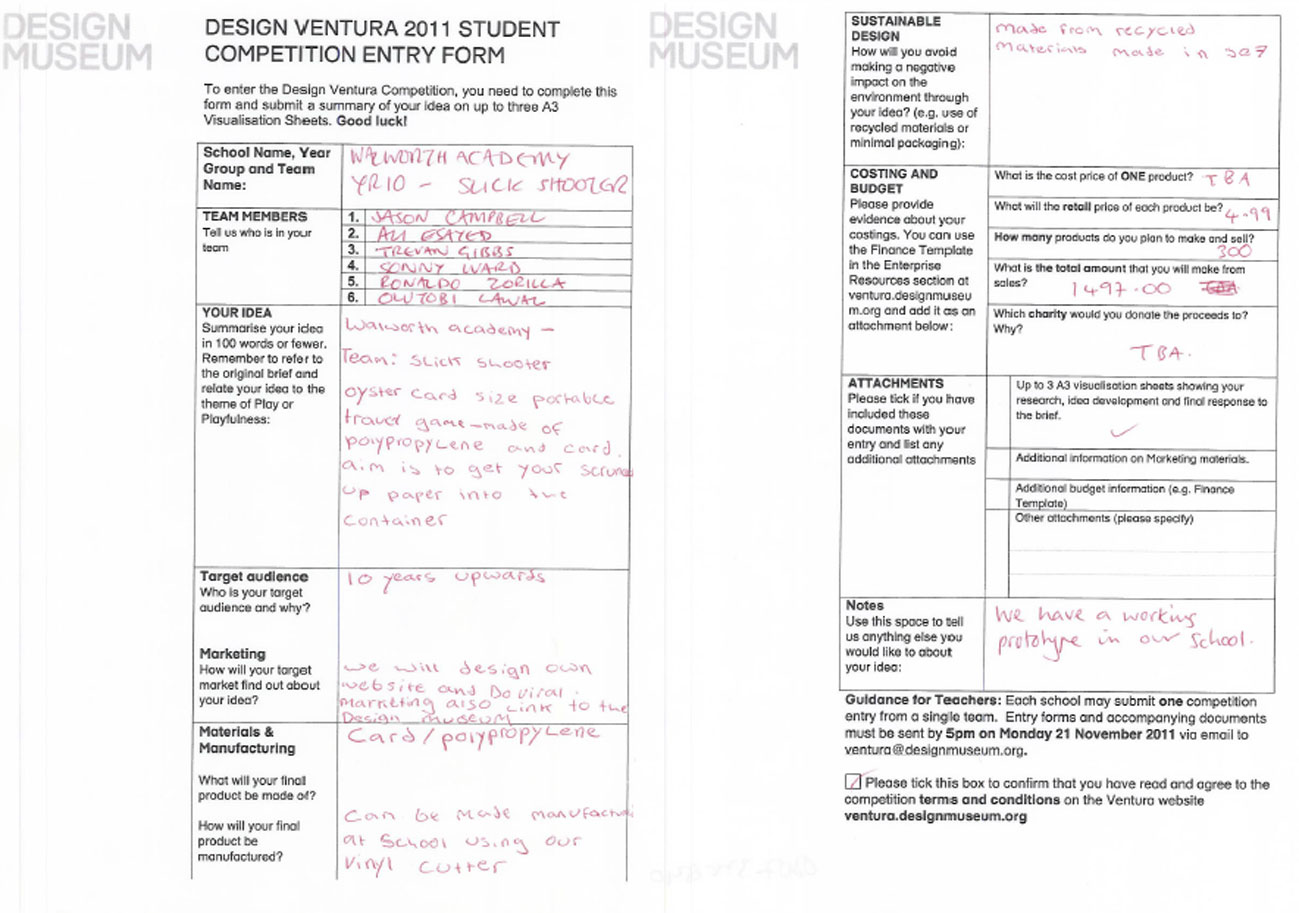 DESIGN
MUSEUM
DESIGN VENTURA 2011 STUDENT
COMPETITION ENTRY FORM
To enter the Design Ventura Competition, you need to complete this
form and submit a summary of your idea on up to three A3
Visualisation Sheets. Good luck!
School Name, Year
Group and Team
Name:
WALWORTH ACADEMY
YR10 - SLICK SHOOTER
TEAM MEMBERS
Tell us who is in your
team
1. JASON CAMPBELL
2. ALI ESAYED
3. TREVAN GIBBS
4. SONNY WARD
5. RONALDO ZORILLA
6. OLUTOBI LAWAL
YOUR IDEA
Summarise your idea
in 100 words or fewer.
Remember to refer to
the original brief and
relate your idea to the
theme of Play or
Playfulness:
Walworth academy -
Team: Slick Shooter
oyster card size portable
travel game-made of
polypropylene and card.
aim is to get your scruned
up paper into the
container
Target audience
Who is your target
audience and why?
10 years upwards
Marketing
How will your target
market find out about
your idea?
we will design own
website and Do viral.
Marketing also Link to the
Design museum
Materials &
Manufacturing
What will your final
product be made of?
Card/polypropylene
How will your final
product be
manufactured?
Can be made
at School using our
vinyl cutter
DESIGN
MUSEUM
SUSTAINABLE
DESIGN
How will you avoid
making a negative
impact on the
environment through
your idea? (e.g. use of
recycled materials or
minimal packaging):
made from recycled
materials made in se7
COSTING AND
BUDGET
Please provide
evidence about your
costings. You can use
the Finance Template
in the Enterprise
Resources section at
ventura.designmuseu
m.org and add it as an
attachment below:
What is the cost price of ONE product? TBA
What will the retail price of each product be? 4.99
How many products do you plan to make and sell?
300
What is the total amount that you will make from
sales? 1497.00
Which charity would you donate the proceeds to?
Why?
TBA.
ATTACHMENTS
Please tick if you have
included these
documents with your
entry and list any
additional attachments
Up to 3 A3 visualisation sheets showing your
research, idea development and final response to
the brief.
Additional information on Marketing materials.
Additional budget information (e.g. Finance
Template)
Other attachments (please specify)
Notes
Use this space to tell
us anything else you
would like to about
your idea:
We have a working
prototype in our school.
Guidance for Teachers: Each school may submit one competition
entry from a single team. Entry forms and accompanying documents
must be sent by 5pm on Monday 21 November 2011 via email to
ventura@designmuseum.org.
Please tick this box to confirm that you have read and agree to the
competition terms and conditions on the Ventura website
ventura.designmuseum.org